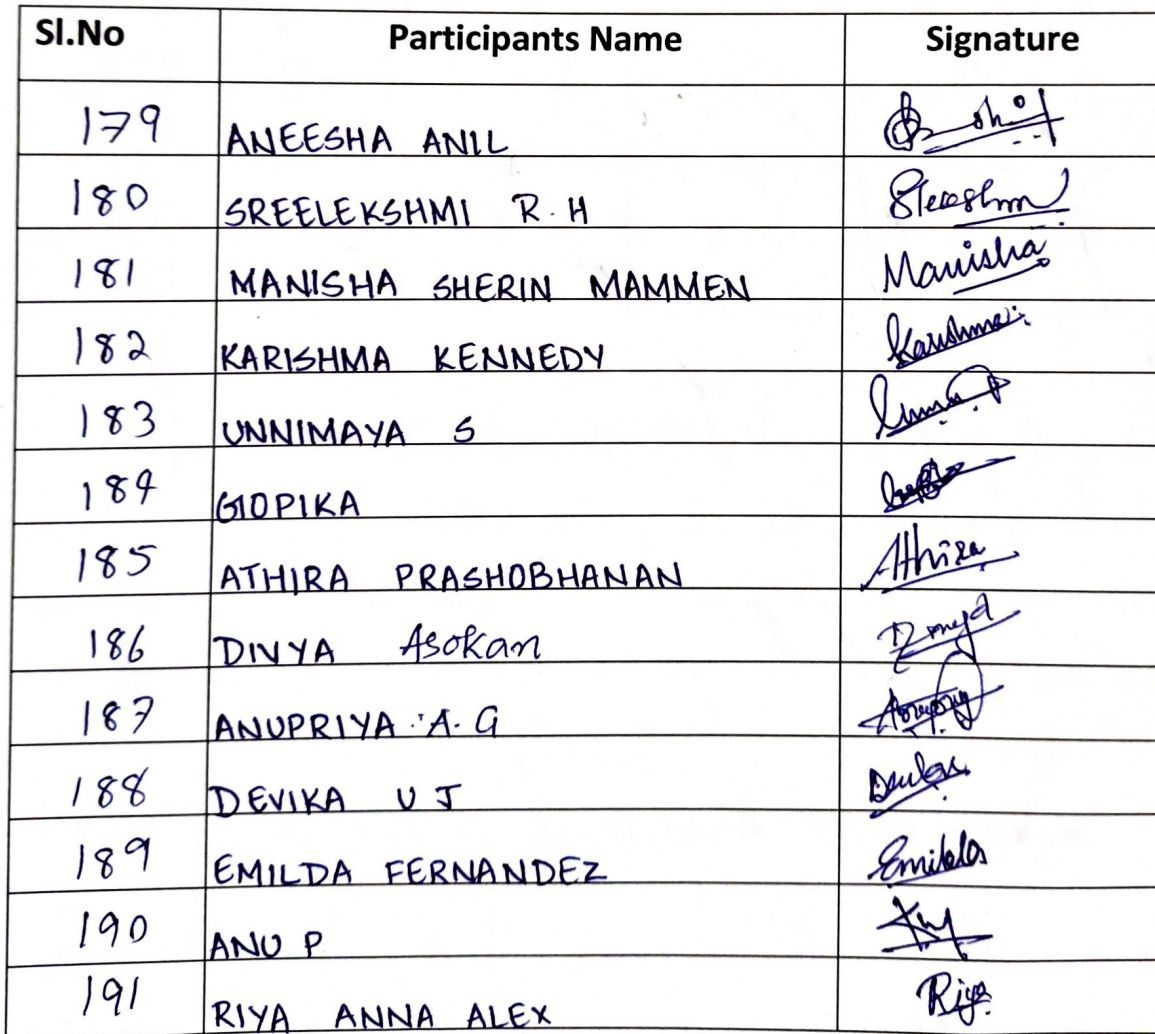 Sl.No Participants Name Signature
179 ANEESHA ANIL
180 SREELEKSHMI R.H
181 MANISHA SHERIN MAMMEN Manisha
182 KARISHMA KENNEDY Karishma
183 UNNIMAYA S
184 GOPIKA
185 ATHIRA PRASHOBHANAN Athira
186 DIVYA Asokan
187 ANUPRIYA A.G
188 DEVIKA U J
189 EMILDA FERNANDEZ Emilda
190 ANU P
191 RIYA ANNA ALEX Riya